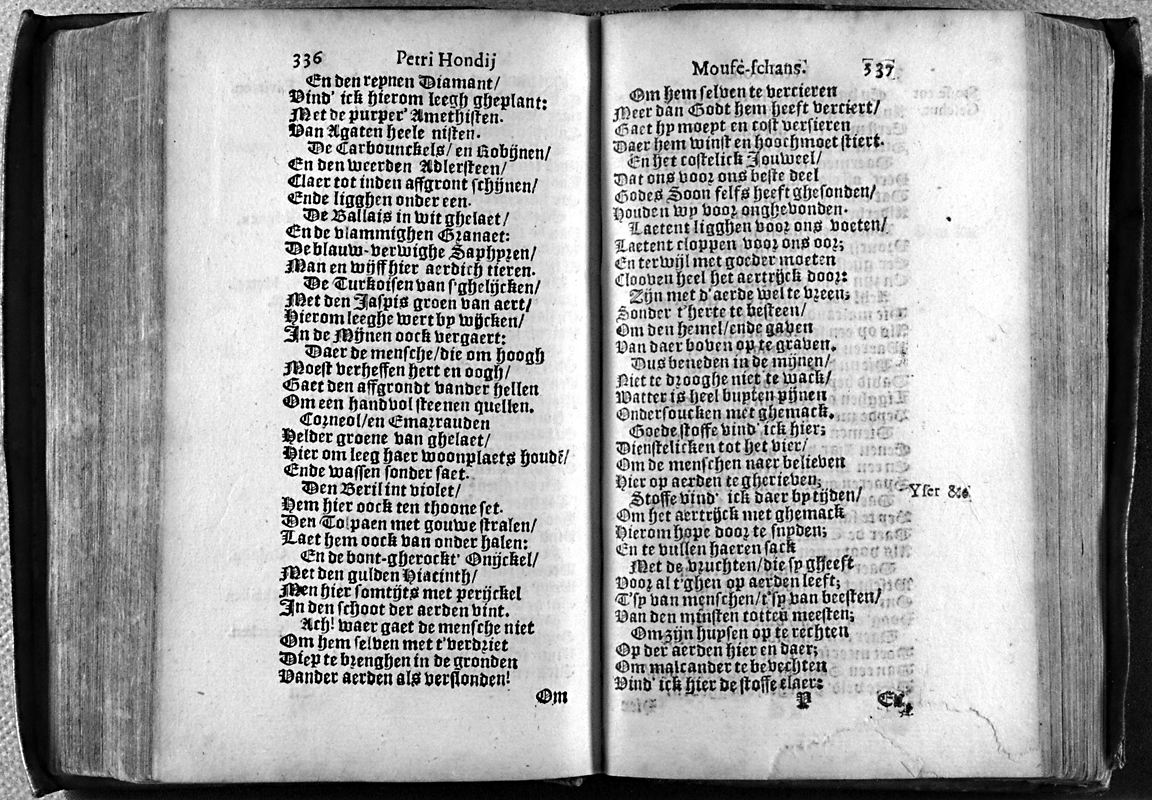 336 Petri Hondij
En den reynen Diamant/
Vind' ick hierom leegh gheplant:
Met de purper' Amethisten.
Van Agaten heele nisten.
De Carbounckels/ en Robijnen/
En den weerden Adlersteen/
Claer tot inden affgront schijnen/
Ende ligghen onder een.
De Ballais in wit ghelaet/
En de vlammighen Granaet:
De blauw-verwighe Saphyren/
Man en wijff hier aerdich tieren.
De Turkoisen van s'ghelijcken/
Met den Jaspis groen van aert/
Hierom leeghe wert by wijcken/
In de Mijnen oock vergaert:
Daer de mensche/die om hoogh
Moest verheffen hert en oogh/
Gaet den affgrondt vander hellen
Om een handvol steenen quellen.
Corneol/en Emarrauden
Helder groene van ghelaet/
Hier om leeg haer woonplaets houdē/
Ende wassen sonder saet.
Den Beril int violet/
Hem hier oock ten thoone set.
Den Tolpaen met gouwe stralen/
Laet hem oock van onder halen:
En de bont-gherockt' Onijckel/
Met den gulden Hiacinth/
Men hier somtijts met perijckel
In den schoot der aerden vint.
Ach! waer gaet de mensche niet
Om hem selven met t'verdriet
Diep te brenghen in de gronden
Vander aerden als verslonden!
Om
Moufe-schans. 337
Om hem selven te vercieren
Meer dan Godt hem heeft verciert/
Gaet hy moeyt en cost versieren
Daer hem winst en hoochmoet stiert.
En het costelick Jouweel/
Dat ons voor ons beste deel
Godes Soon selfs heeft ghesonden/
Houden wy voor onghevonden.
Laetent ligghen voor ons voeten/
Laetent cloppen voor ons oor;
En terwijl met goeder moeten
Clooven heel het aertrijck door:
Zijn met d'aerde wel te vreen;
Sonder t'herte te besteen/
Om den hemel/ende gaven
Van daer boven op te graven.
Dus beneden in de mijnen/
Niet te drooghe niet te wack/
Watter is heel buyten pijnen
Ondersoucken met ghemack.
Goede stoffe vind' ick hier;
Dienstelicken tot het vier/
Om de menschen naer believen
Hier op aerden te gherieven;
Stoffe vind' ick daer by tijden/
Yser &c.
Om het aertrijck met ghemack
Hierom hope door te snyden;
En te vullen haeren sack
Met de vruchten/die sy gheeft
Voor al t'ghen op aerden leeft;
T'sy van menschen/t'sy van beesten/
Van den minsten totten meesten;
Om zijn huysen op te rechten
Op der aerden hier en daer;
Om malcander te bevechten
Vind' ick hier de stoffe claer:
P